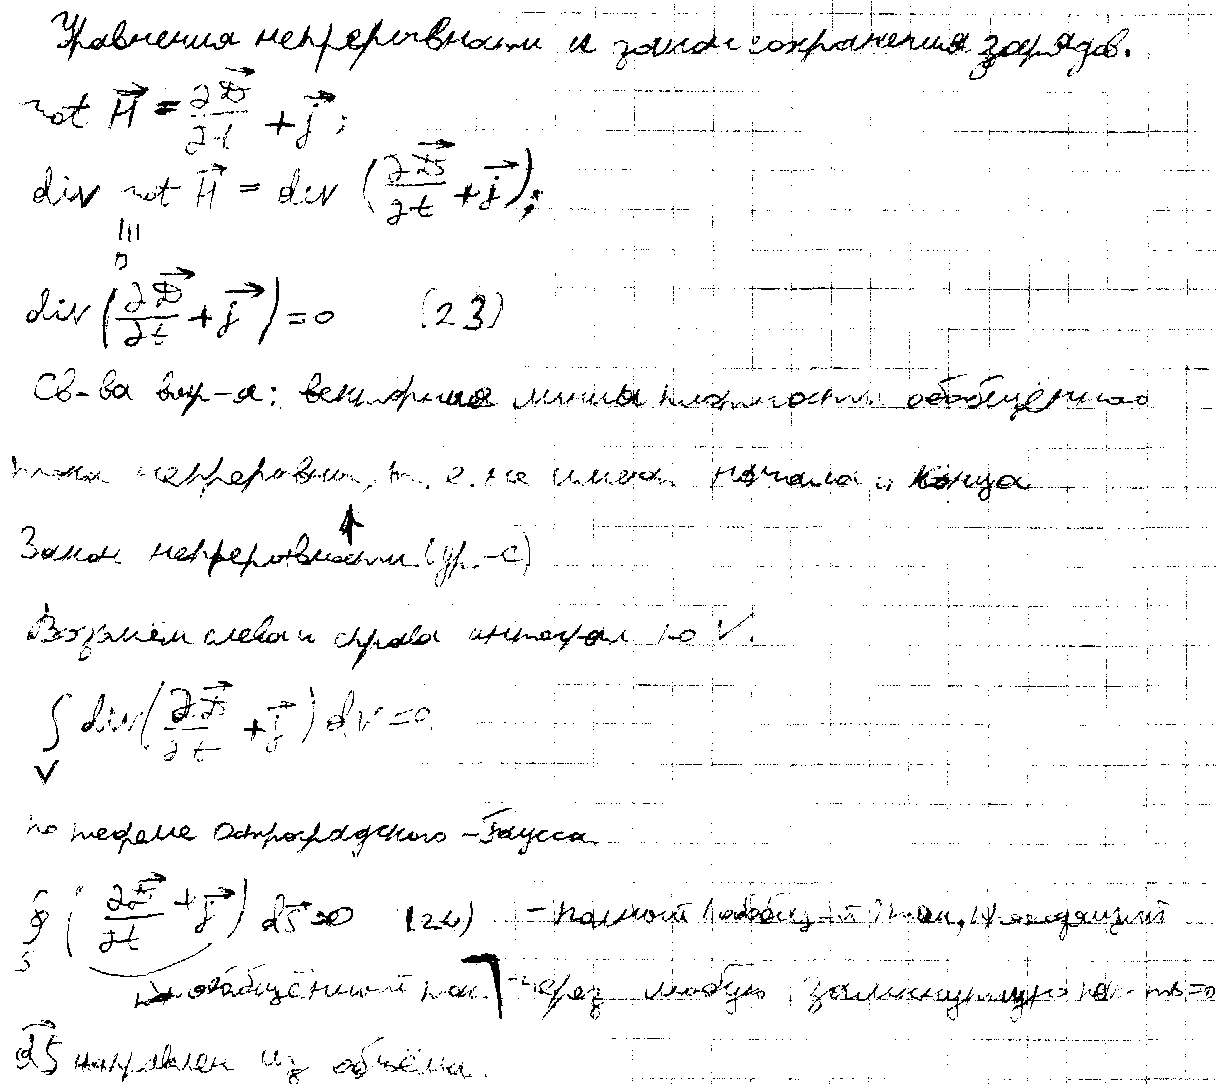 Уравнения непрерывности и закон сохранения зарядов.
rot H⃗ = ∂D⃗/∂t + j⃗;
div rot H⃗ = div (∂D⃗/∂t + j⃗);
≡ 0
div (∂D⃗/∂t + j⃗) = 0 (23)
Св-ва вир-а: векторные линии плотности обобщённого
тока непрерывны, т. е. не имеют начала и конца
↑
Закон непрерывности (ур.-е)
Возьмём слева и справа интеграл по V.
∫V div(∂D⃗/∂t + j⃗) dV = 0
по теореме Остроградского-Гаусса
∮S (∂D⃗/∂t + j⃗) dS⃗ = 0 (24) - полный ток, проходящий
обобщённый ток. через любую замкнутую =0
dS⃗ направлен из объёма.